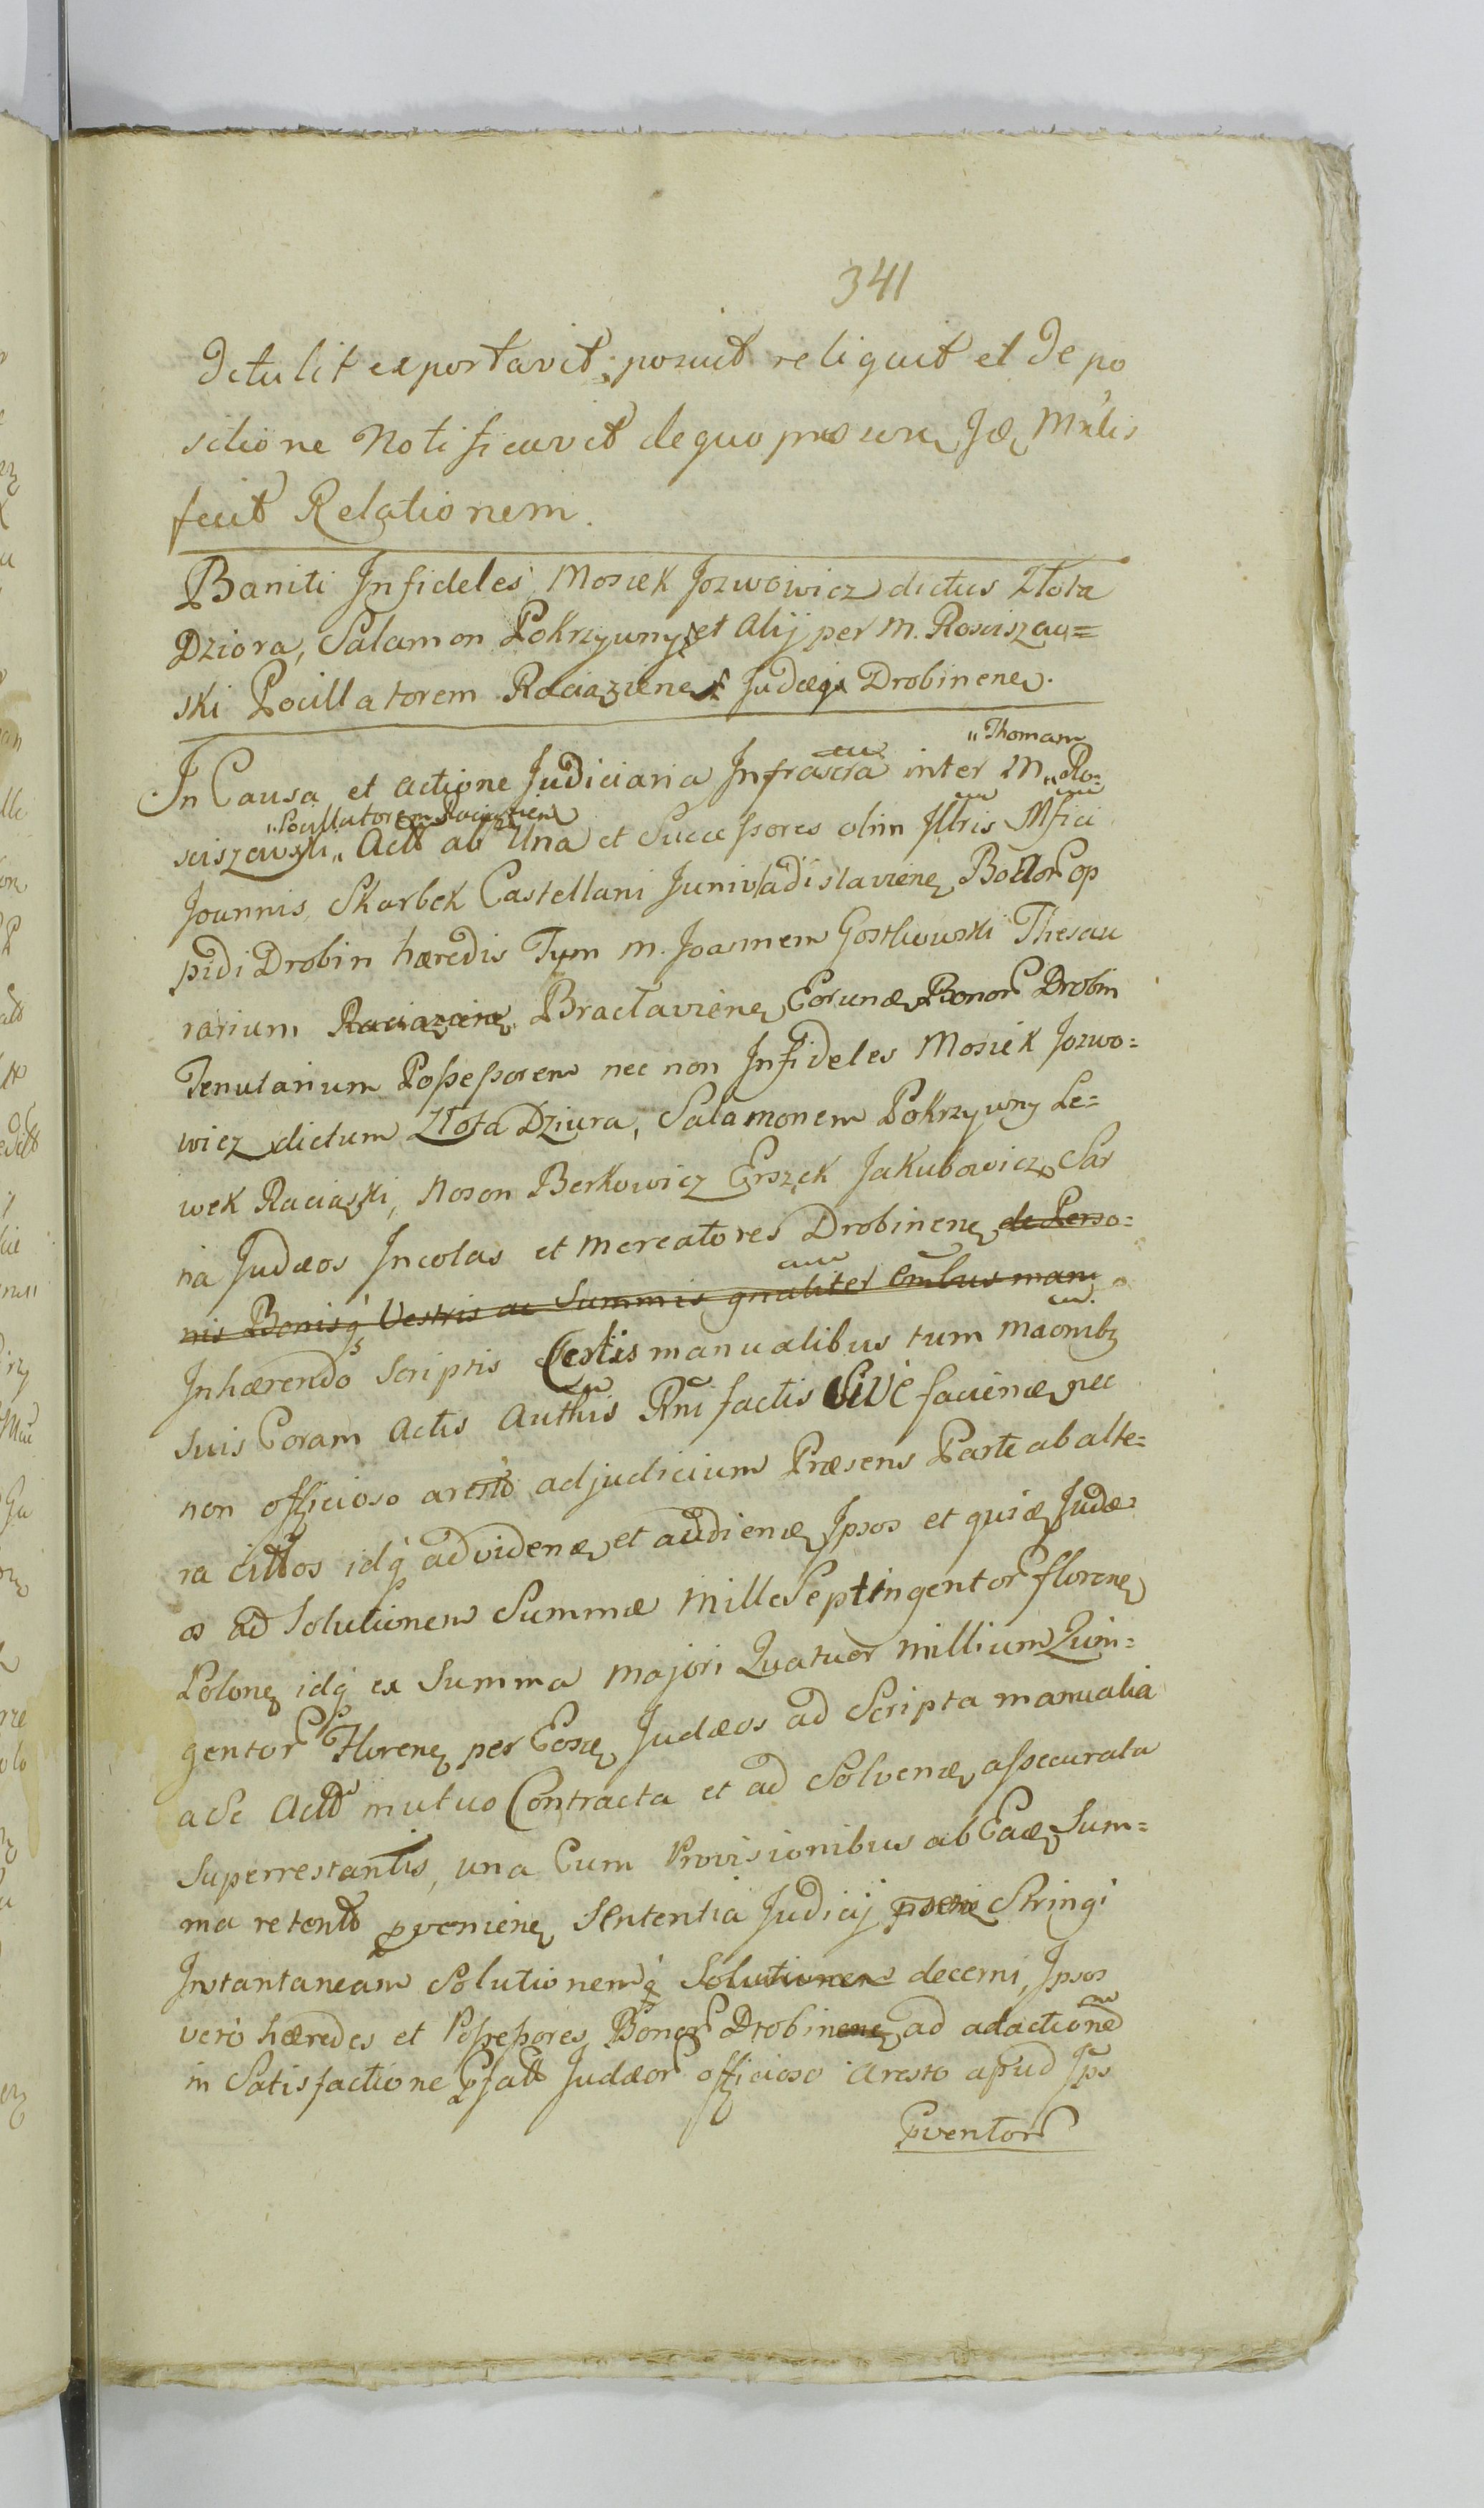 341
detulit exportavit posuit reliquit et de po
sitione Notificavit de quo præsen Jd Mnlis
fecit Relationem.
Baniti Infideles Mosiek Jozwowicz dictus Złota
Dziora, Salamon Pokrzywny et Alij per M. Rosciszew=
ski Pocillatorem Raciązienę Judæi Drobinenę.
"Thomam
In Causa et actione Judiciaria Infrascra inter M" Ro=
"Pocillatorem Raciązien
sciszewski" Actt ab Una et Successores olim Illtris Mfici
Joannis Skarbek Castellani Junivladislavienę Bonor Op
pidi Drobin hæredis Tym M. Joannem Gostkowski Thesau
rarium Raciązienę Bractavienę Eorundę Bonor Drobin
Tenutarium Possessorem nec non Infideles Mosiek Jozwo=
wicz dictum Złota Dziura, Salamonem Pokrzywny Le=
wek Raciąski, Noson Berkowicz Erszek Jakubowicz Sar
na Judæos Incolas et Mercatores Drobinenę de Perso=
nis Bonisq Vestris ac Summis gnaliter Ombus man
Inhærendo Scriptis Certis manualibus tum maombz
suis Coram Actis Authis Rni factis Sive faciendę nec
non officioso aresto ad judicium Præsens Parte ab alte=
ra cittos idq ad videndę et audiendę Ipsos et quidę Judæ=
os ad Solutionem Summæ Mille Septingentor florenę
Polonę idq ex Summa majori Quatuor Millium Quin=
gentor Florenę per Eosdę Judæos ad Scripta manualia
a Se Actt mutuo Contracta et ad Solvendę assecurata
Superrestantis, una Cum Provisionibus ab Eadę Sum=
ma retentt pvenienę Sententia Judicij Stringi
Instantaneam Solutionemq Solutionem decerni, Ipsos
vero hæredes et Possessores Bonor Drobinenę ad adactione
in Satisfactione Pfatt Judæor officioso Aresto apud Ips
Pventor